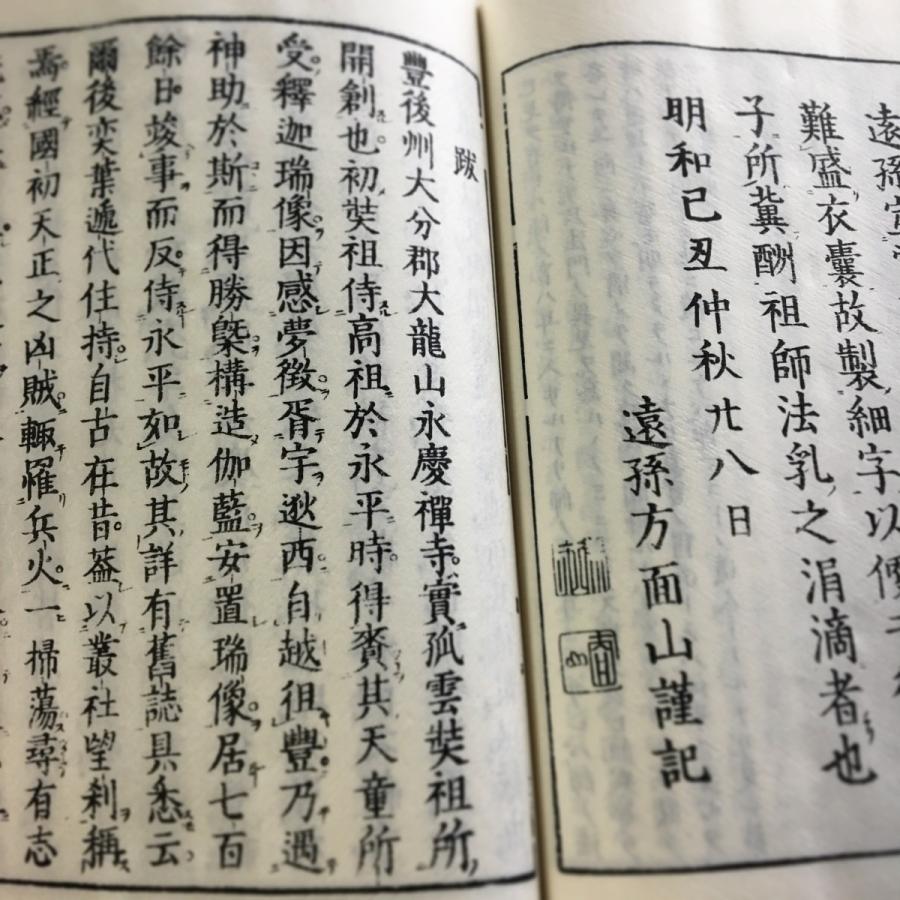 遠孫宣
難盛衣囊故製細字以便
子所冀酬祖師法乳之涓滴者也
明和己丑仲秋廿八日
遠孫方面山謹記
跋
豐後州大分郡大龍山永慶禪寺實孤雲奘祖所
開創也初奘祖侍高祖於永平時得賚其天童所
受釋迦瑞像因感夢徵胥宇逖西自越徂豐乃遇
神助於斯而得勝槩構造伽藍安置瑞像居七百
餘日竣事而反侍永平如故其詳有舊誌具悉云
爾後奕葉遞代住持自古在昔葢以叢社望剎稱
焉經國初天正之凶賊輙罹兵火一掃蕩尋有志